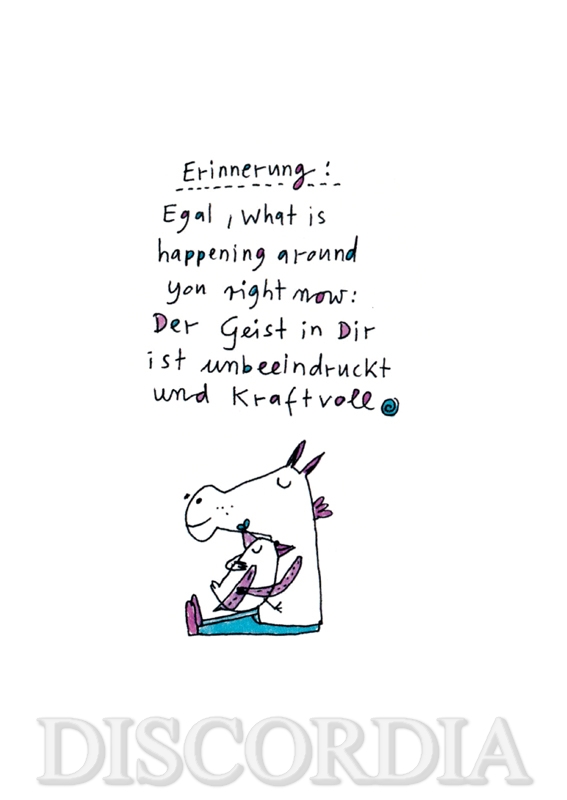 Erinnerung:
Egal, What is
happening around
you right now:
Der Geist in Dir
ist unbeeindruckt
und Kraftvoll
DISCORDIA